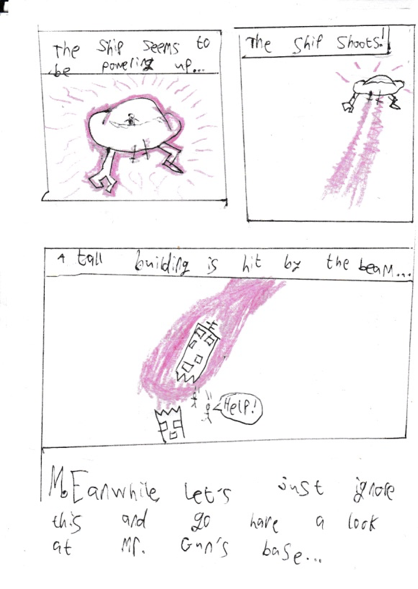 The Ship Seems to
be powering up...
The Ship Shoots!
A tall building is hit by the beam...
Help!
MEanwhile Let's just ignore
this and go have a look
at Mr. Gun's base...